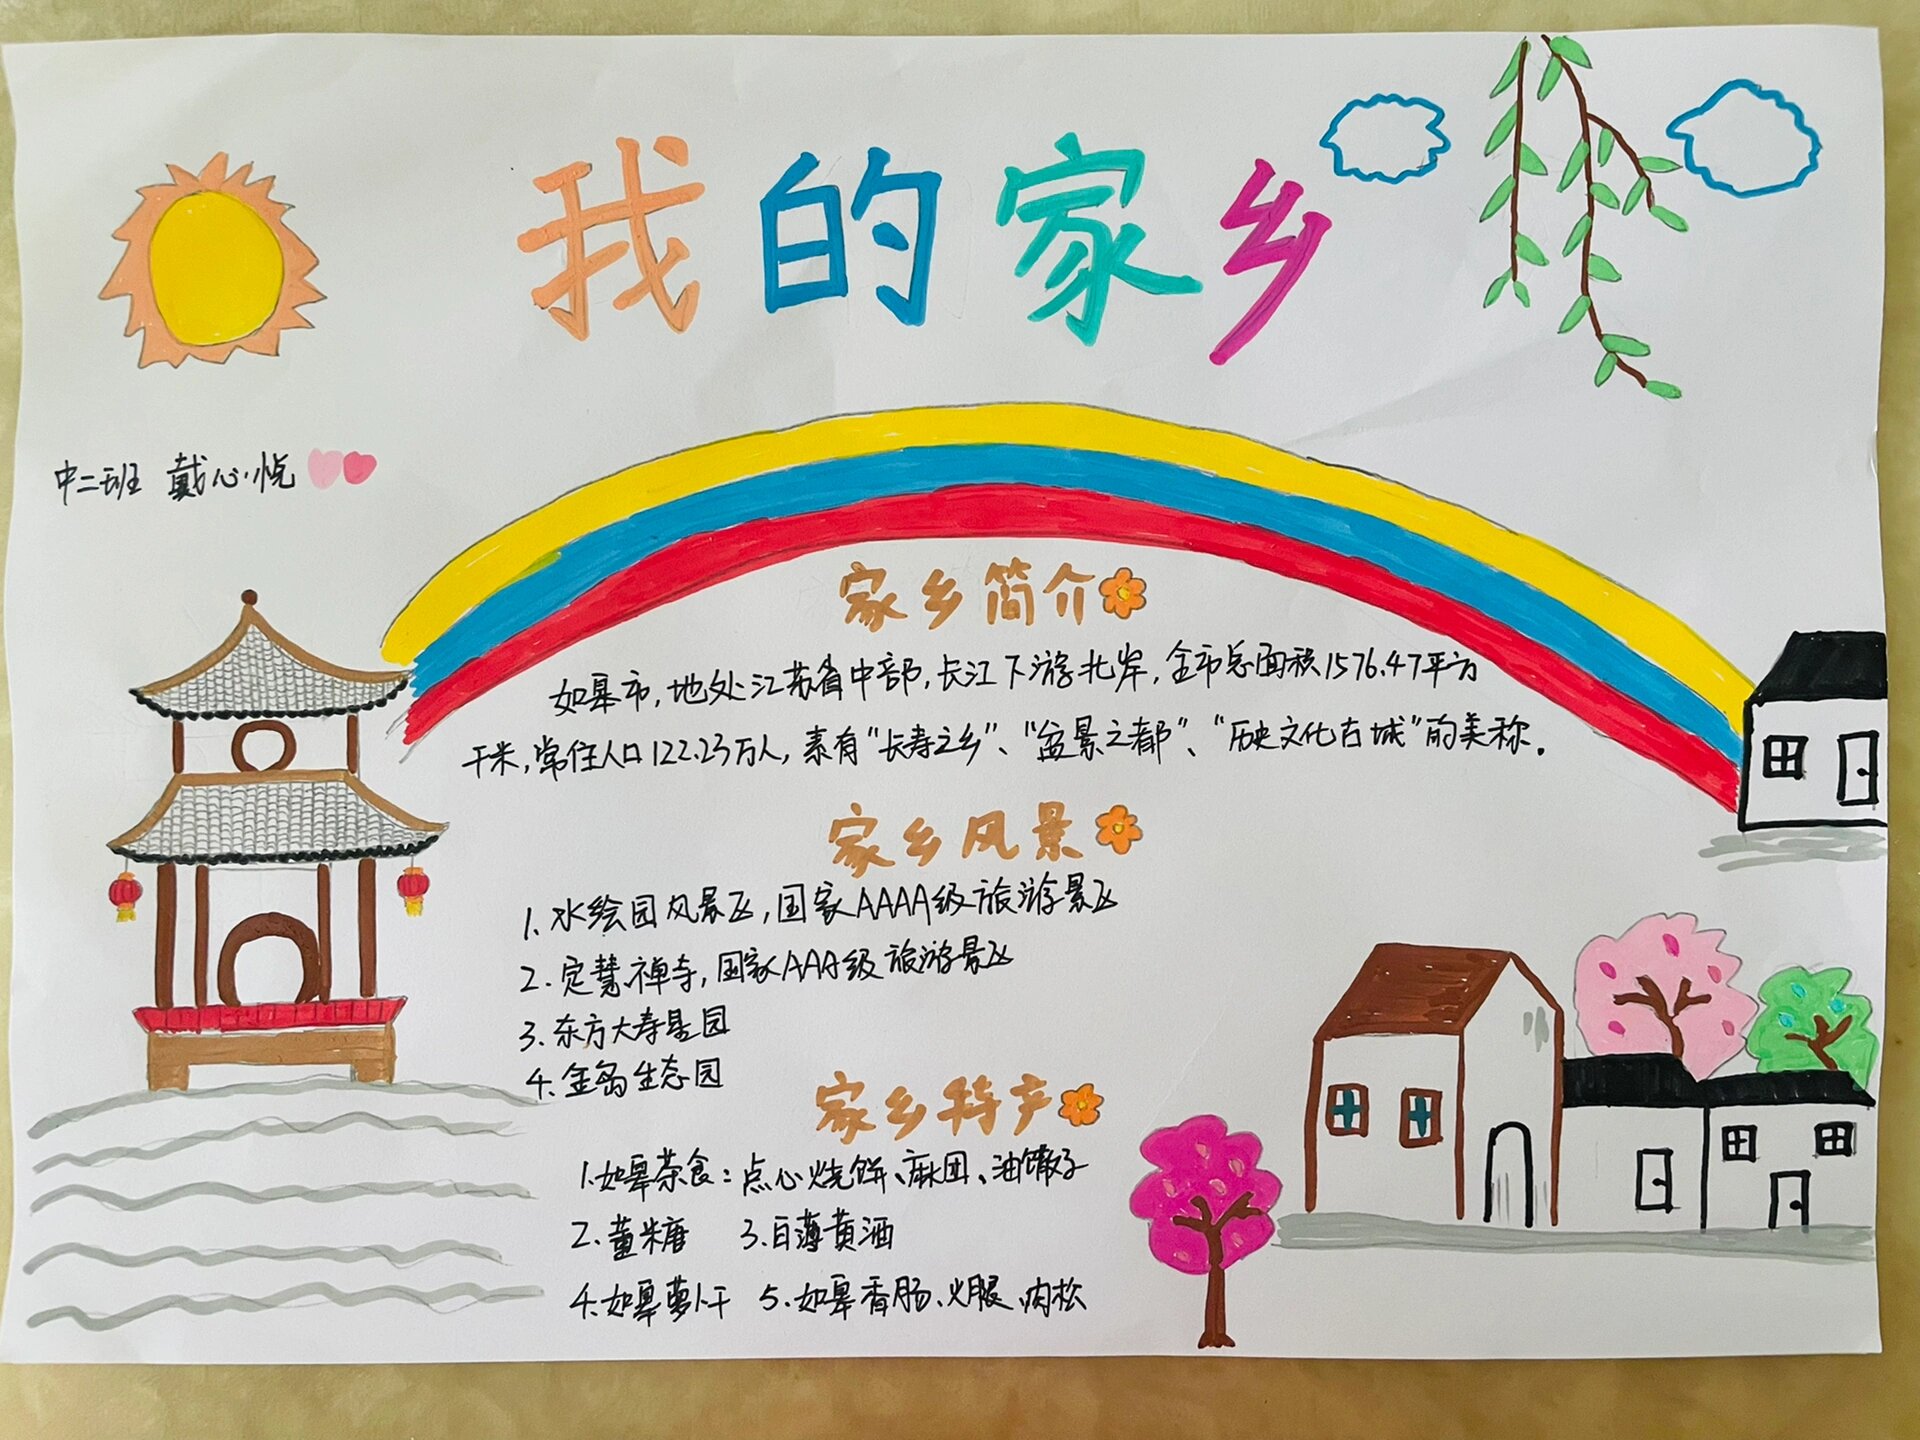 我的家乡
中二班 戴心悦
家乡简介
如皋市,地处江苏省中部,长江下游北岸,全市总面积1576.47平方
千米,常住人口122.23万人,素有“长寿之乡”、“盆景之都”、“历史文化古城”的美称。
家乡风景
1.水绘园风景区,国家AAAA级旅游景区
2.定慧禅寺,国家AAA级旅游景区
3.东方大寿星园
4.金岛生态园
家乡特产
1.如皋茶食:点心烧饼、麻团、油馓子
2.董糖 3.白蒲黄酒
4.如皋萝卜干 5.如皋香肠、火腿、肉松